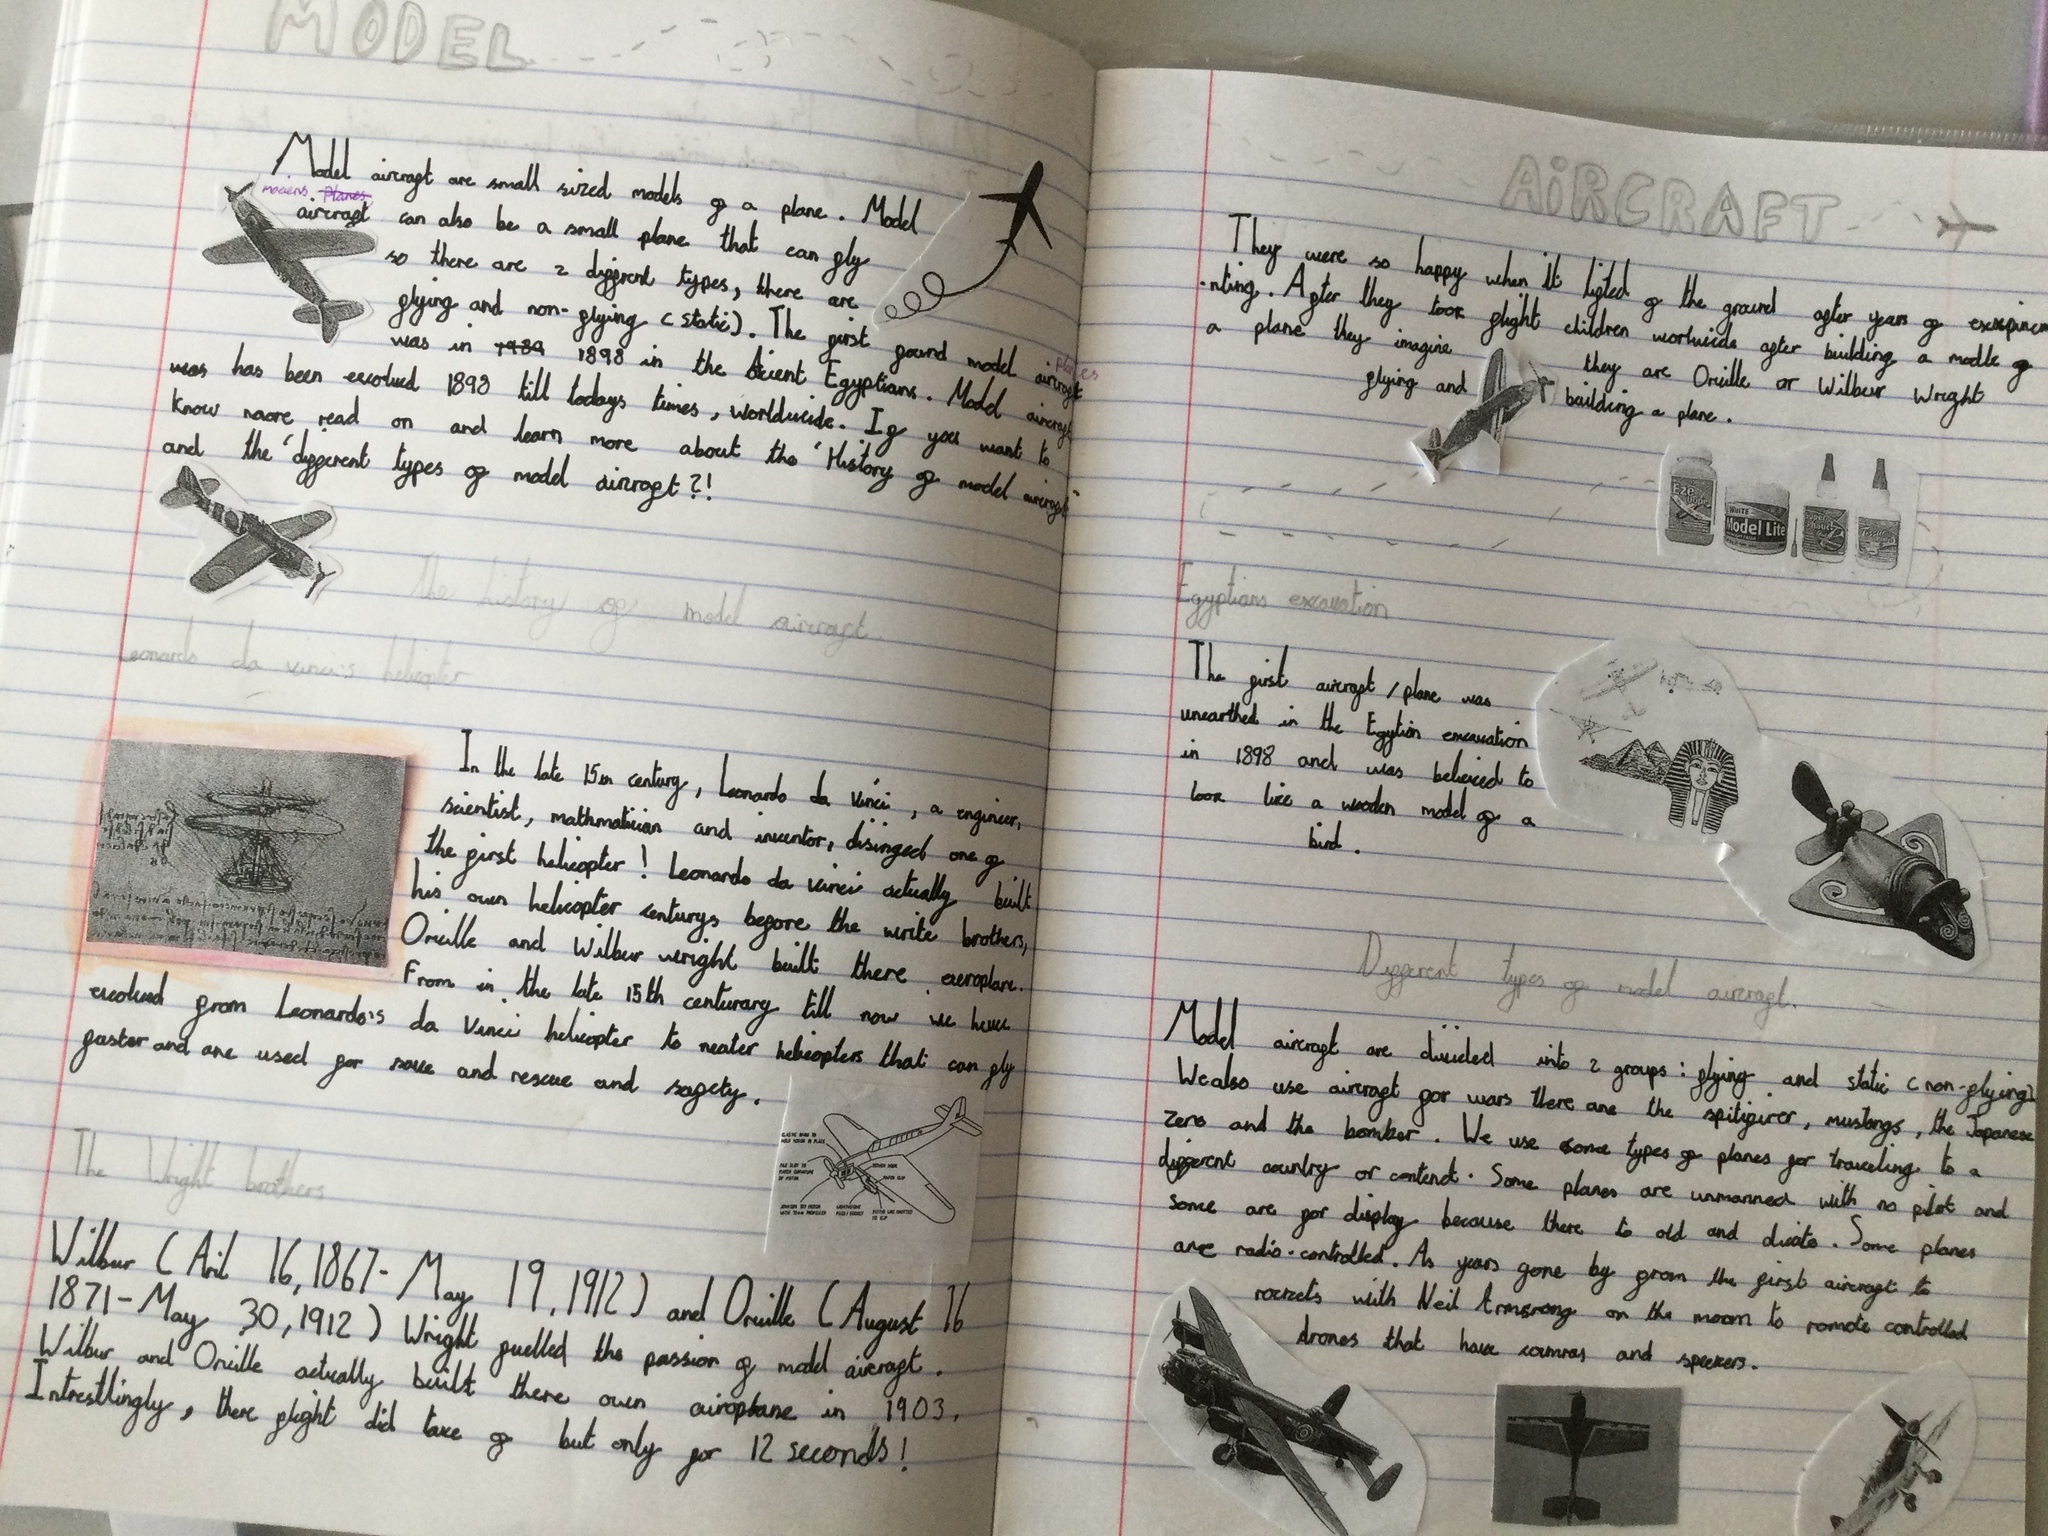 MODEL
Model aircraft are small sized models of a plane. Model
planes
aircraft can also be a small plane that can fly
so there are 2 different types, there are
flying and non-flying (static). The first found model aircraft
planes
was in 1989 1898 in the Aicient Egyptians. Model aircraft
was has been evolved 1898 till todays times, worldwide. If you want to
know more read on and learn more about the 'History of model aircraft"
and the 'different types of model aircraft?!
The history of model aircraft.
Leonardo da vinci's helicopter
In the late 15th century, Leonardo da vinci, a engineer,
scientist, mathmatician and inventor, disinged one of
the first helicopter! Leonardo da vinci actually built
his own helicopter centurys before the write brothers,
Orville and Wilbur wright built there aeroplane.
From in the late 15th centurary till now we have
evolved from Leonardo's da Vinci helicopter to neater helicopters that can fly
faster and are used for save and rescue and safety.
ELASTIC BAND TO
HOLD MOTOR IN PLACE
The Wright brothers
Wilbur (Aril 16, 1867-May 19, 1912) and Orville (August 16
1871-May 30, 1912) Wright fuelled the passion of model aircraft.
Wilbur and Orville actually built there own airoplane in 1903.
Intrestlingly, there flight did take of but only for 12 seconds!
AiRCRAFT
They were so happy when it lifted of the ground after years of exexpirim
-nting. After they took flight children worlwide after building a modle of
a plane they imagine they are Orville or Wilbur Wright
flying and building a plane.
Eze
Dope
WHITE
Model Lite
Egyptians excavation
The first aircraft/plane was
unearthed in the Egytion excavation
in 1898 and was believed to
look like a wooden model of a
bird.
Different types of model aircraft.
Model aircraft are divided into 2 groups: flying and static (non-flying)
We also use aircraft for wars there are the spitifirer, mustangs, the Japanese
zero and the bomber. We use some types of planes for traveling to a
different country or contenct. Some planes are unmanned with no pilot and
some are for display because there to old and dicate. Some planes
are radio-controlled. As years gone by from the first aircraft to
rockets with Neil Armsrong on the moom to romote controlled
drones that have camras and speekers.